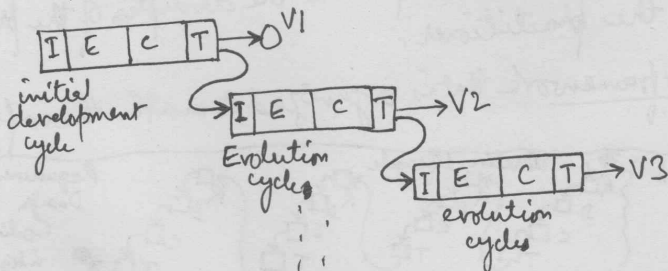 I E C T V1
initial
development
cycle
I E C T V2
Evolution
cycles
I E C T V3
evolution
cycles